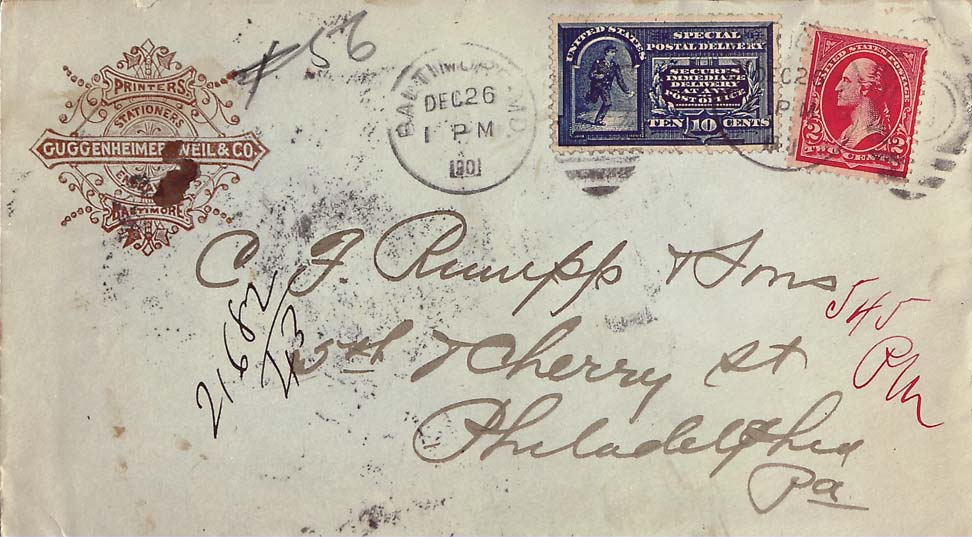 PRINTERS
STATIONERS
GUGGENHEIMER WEIL & CO.
BALTIMORE
# 56
BALTIMORE, MD.
DEC 26
1 PM
1901
UNITED STATES
SPECIAL
POSTAL DELIVERY
SECURES
IMMEDIATE
DELIVERY
AT ANY
POST OFFICE
TEN 10 CENTS
DEC 2
UNITED STATES POSTAGE
2 2
TWO CENTS
C. F. Rumpp & Sons
5th & Cherry St
Philadelphia
Pa
21682
545
PM